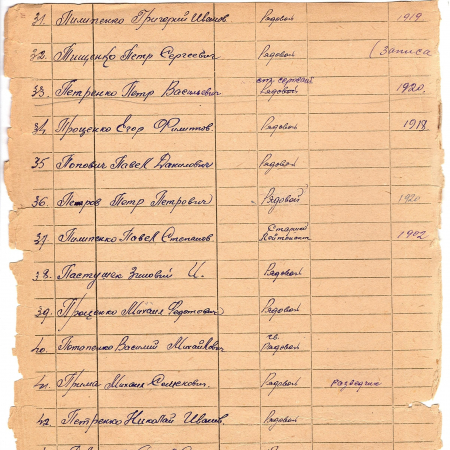 31. Пилипенко Григорий Иванов. Рядовой 1919
32. Тищенко Петр Сергеевич Рядовой (Записа
33. Петренко Петр Васильевич Рядовой 1920.
34. Проценко Егор Филиппов. Рядовой 1918
35 Попович Павел Данилович Рядовой
36. Петров Петр Петрович Рядовой 1920
37. Пилипенко Павел Степанов. Старший Лейтенант 1902
38. Пастушек Зиновий И. Рядовой
39. Проценко Михаил Федотович Рядовой
40. Потопенко Василий Михайлович гв. Рядовой
41. Прима Михаил Рядовой разведчик
42. Петренко Николай Иванов. Рядовой